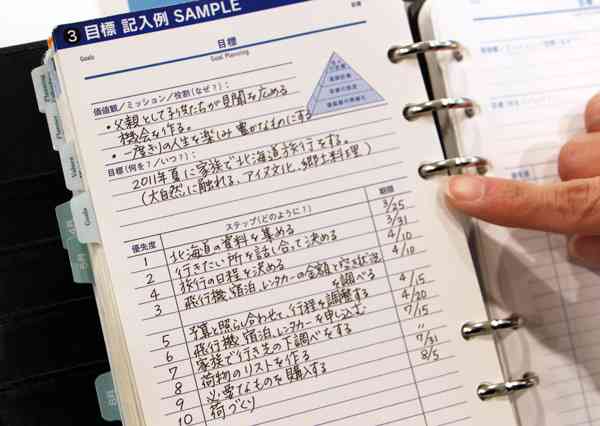 3 目標 記入例 SAMPLE
Goals
目標
Goal Planning
価値観／ミッション／役割(なぜ？)：
・父親として子供たちが見聞を広める
機会を作る。
・一度きりの人生を楽しみ豊かなものにする
目標(何を？／いつ？)：
2011年夏に家族で北海道旅行をする。
(大自然に触れる、アイヌ文化、郷土料理)
優先度 ステップ(どのように？) 期限
1 北海道の資料を集める 3/25
2 行きたい所を話し合って決める 3/31
4 旅行の日程を決める 4/10
3 飛行機、宿泊、レンタカーの金額や空き状況 4/10
を調べる
5 予算と照らし合わせて、行程を調整する 4/15
6 飛行機、宿泊、レンタカーを申し込む 4/20
7 家族で行き先の下調べをする 7/15
8 荷物のリストを作る 〃
9 必要なものを購入する 7/31
10 荷づくり 8/5
Goals
4月
5月
8月